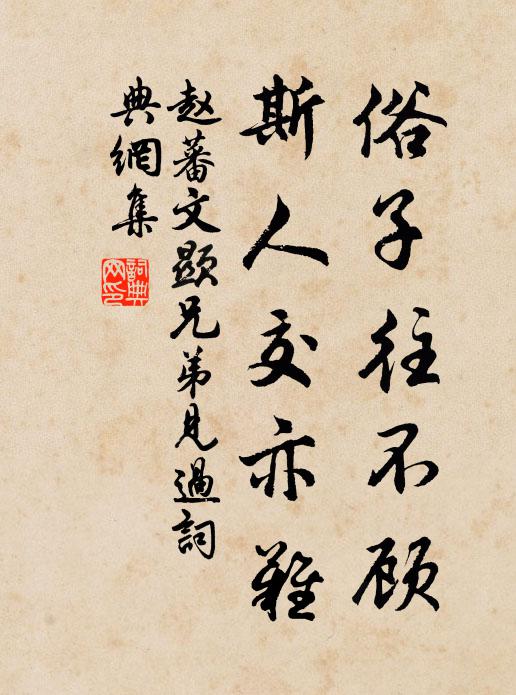 俗子往不顾
斯人交亦难
赵蕃文显兄弟见過詞
典網集
詞典
网印